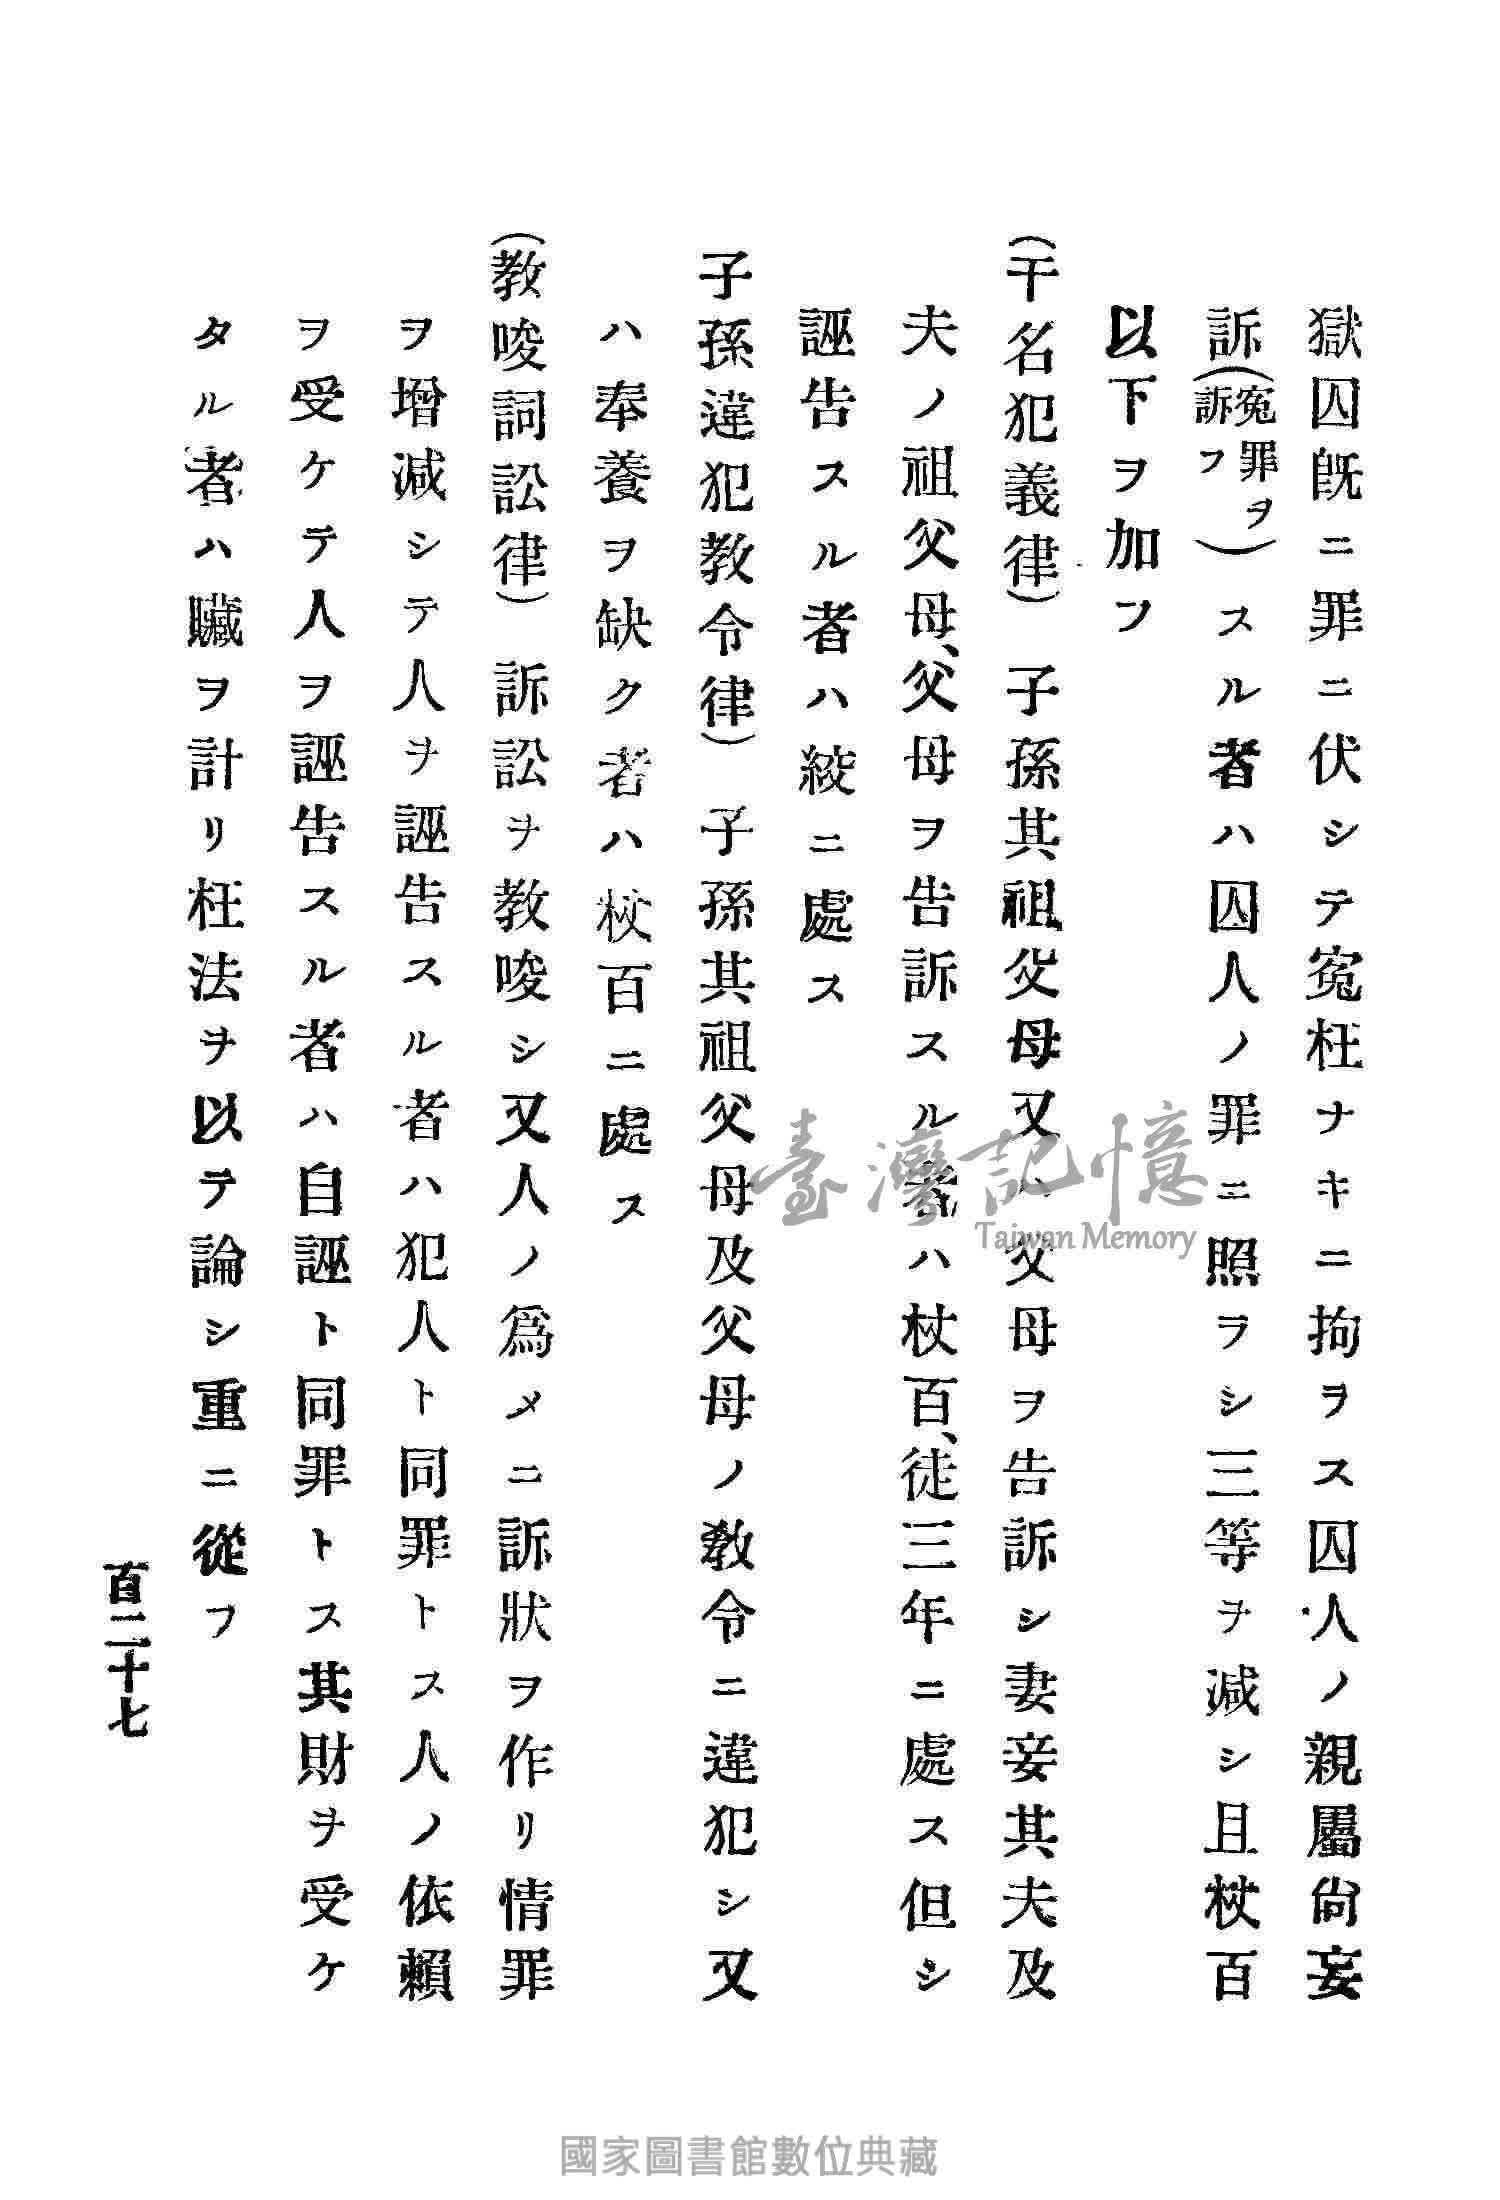 獄囚既ニ罪ニ伏シテ寃枉ナキニ拘ヲス囚人ノ親屬尙妄
訴(寃罪ヲ訴フ)スル者ハ囚人ノ罪ニ照ヲシ三等ヲ減シ且杖百
以下ヲ加フ
(干名犯義律) 子孫其祖父母又ハ父母ヲ告訴シ妻妾其夫及
夫ノ祖父母、父母ヲ告訴スル者ハ杖百、徒三年ニ處ス但シ
誣告スル者ハ絞ニ處ス
子孫違犯教令律) 子孫其祖父母及父母ノ教令ニ違犯シ又
ハ奉養ヲ缺ク者ハ杖百ニ處ス
(教唆詞訟律) 訴訟ヲ教唆シ又人ノ爲メニ訴狀ヲ作リ情罪
ヲ增減シテ人ヲ誣告スル者ハ犯人ト同罪トス人ノ依賴
ヲ受ケテ人ヲ誣告スル者ハ自誣ト同罪トス其財ヲ受ケ
タル者ハ贓ヲ計リ枉法ヲ以テ論シ重ニ從フ
百二十七
臺灣記憶
Taiwan Memory
國家圖書館數位典藏